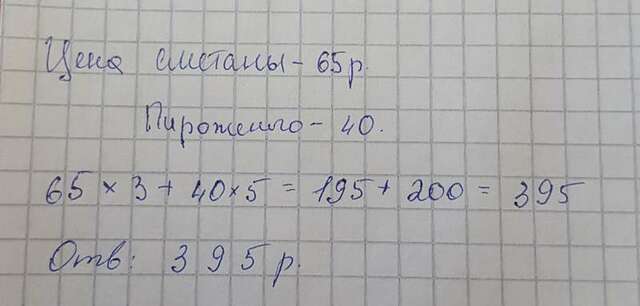 Цена сметаны - 65р.
Пирожного - 40.
65 × 3 + 40 × 5 = 195 + 200 = 395
Отв: 395 р.